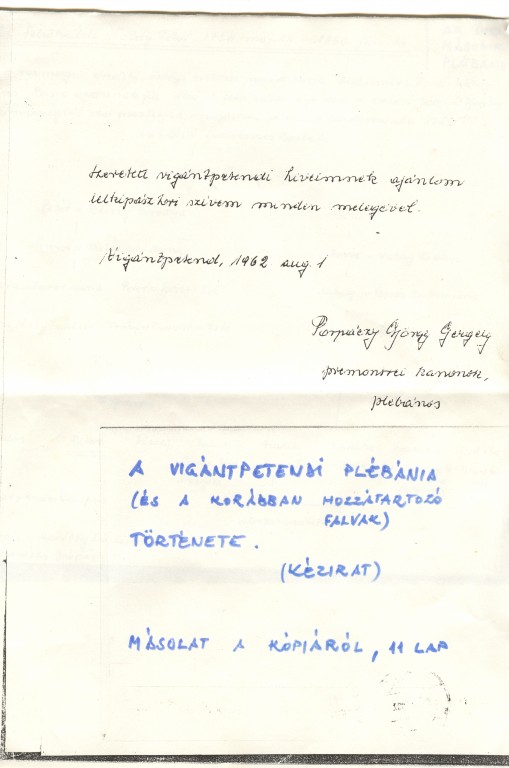 Szeretett vigántpetendi híveimnek ajánlom
lelkipásztori szívem minden melegével.
Vigántpetend, 1962 aug. 1
György Gergely
premontrei kanonok,
plébános
A VIGÁNTPETENDI PLÉBÁNIA
(ÉS A KORÁBBAN HOZZÁTARTOZÓ
FALVAK)
TÖRTÉNETE.
(KÉZIRAT)
MÁSOLAT A KÓPIÁRÓL, 11 LAP